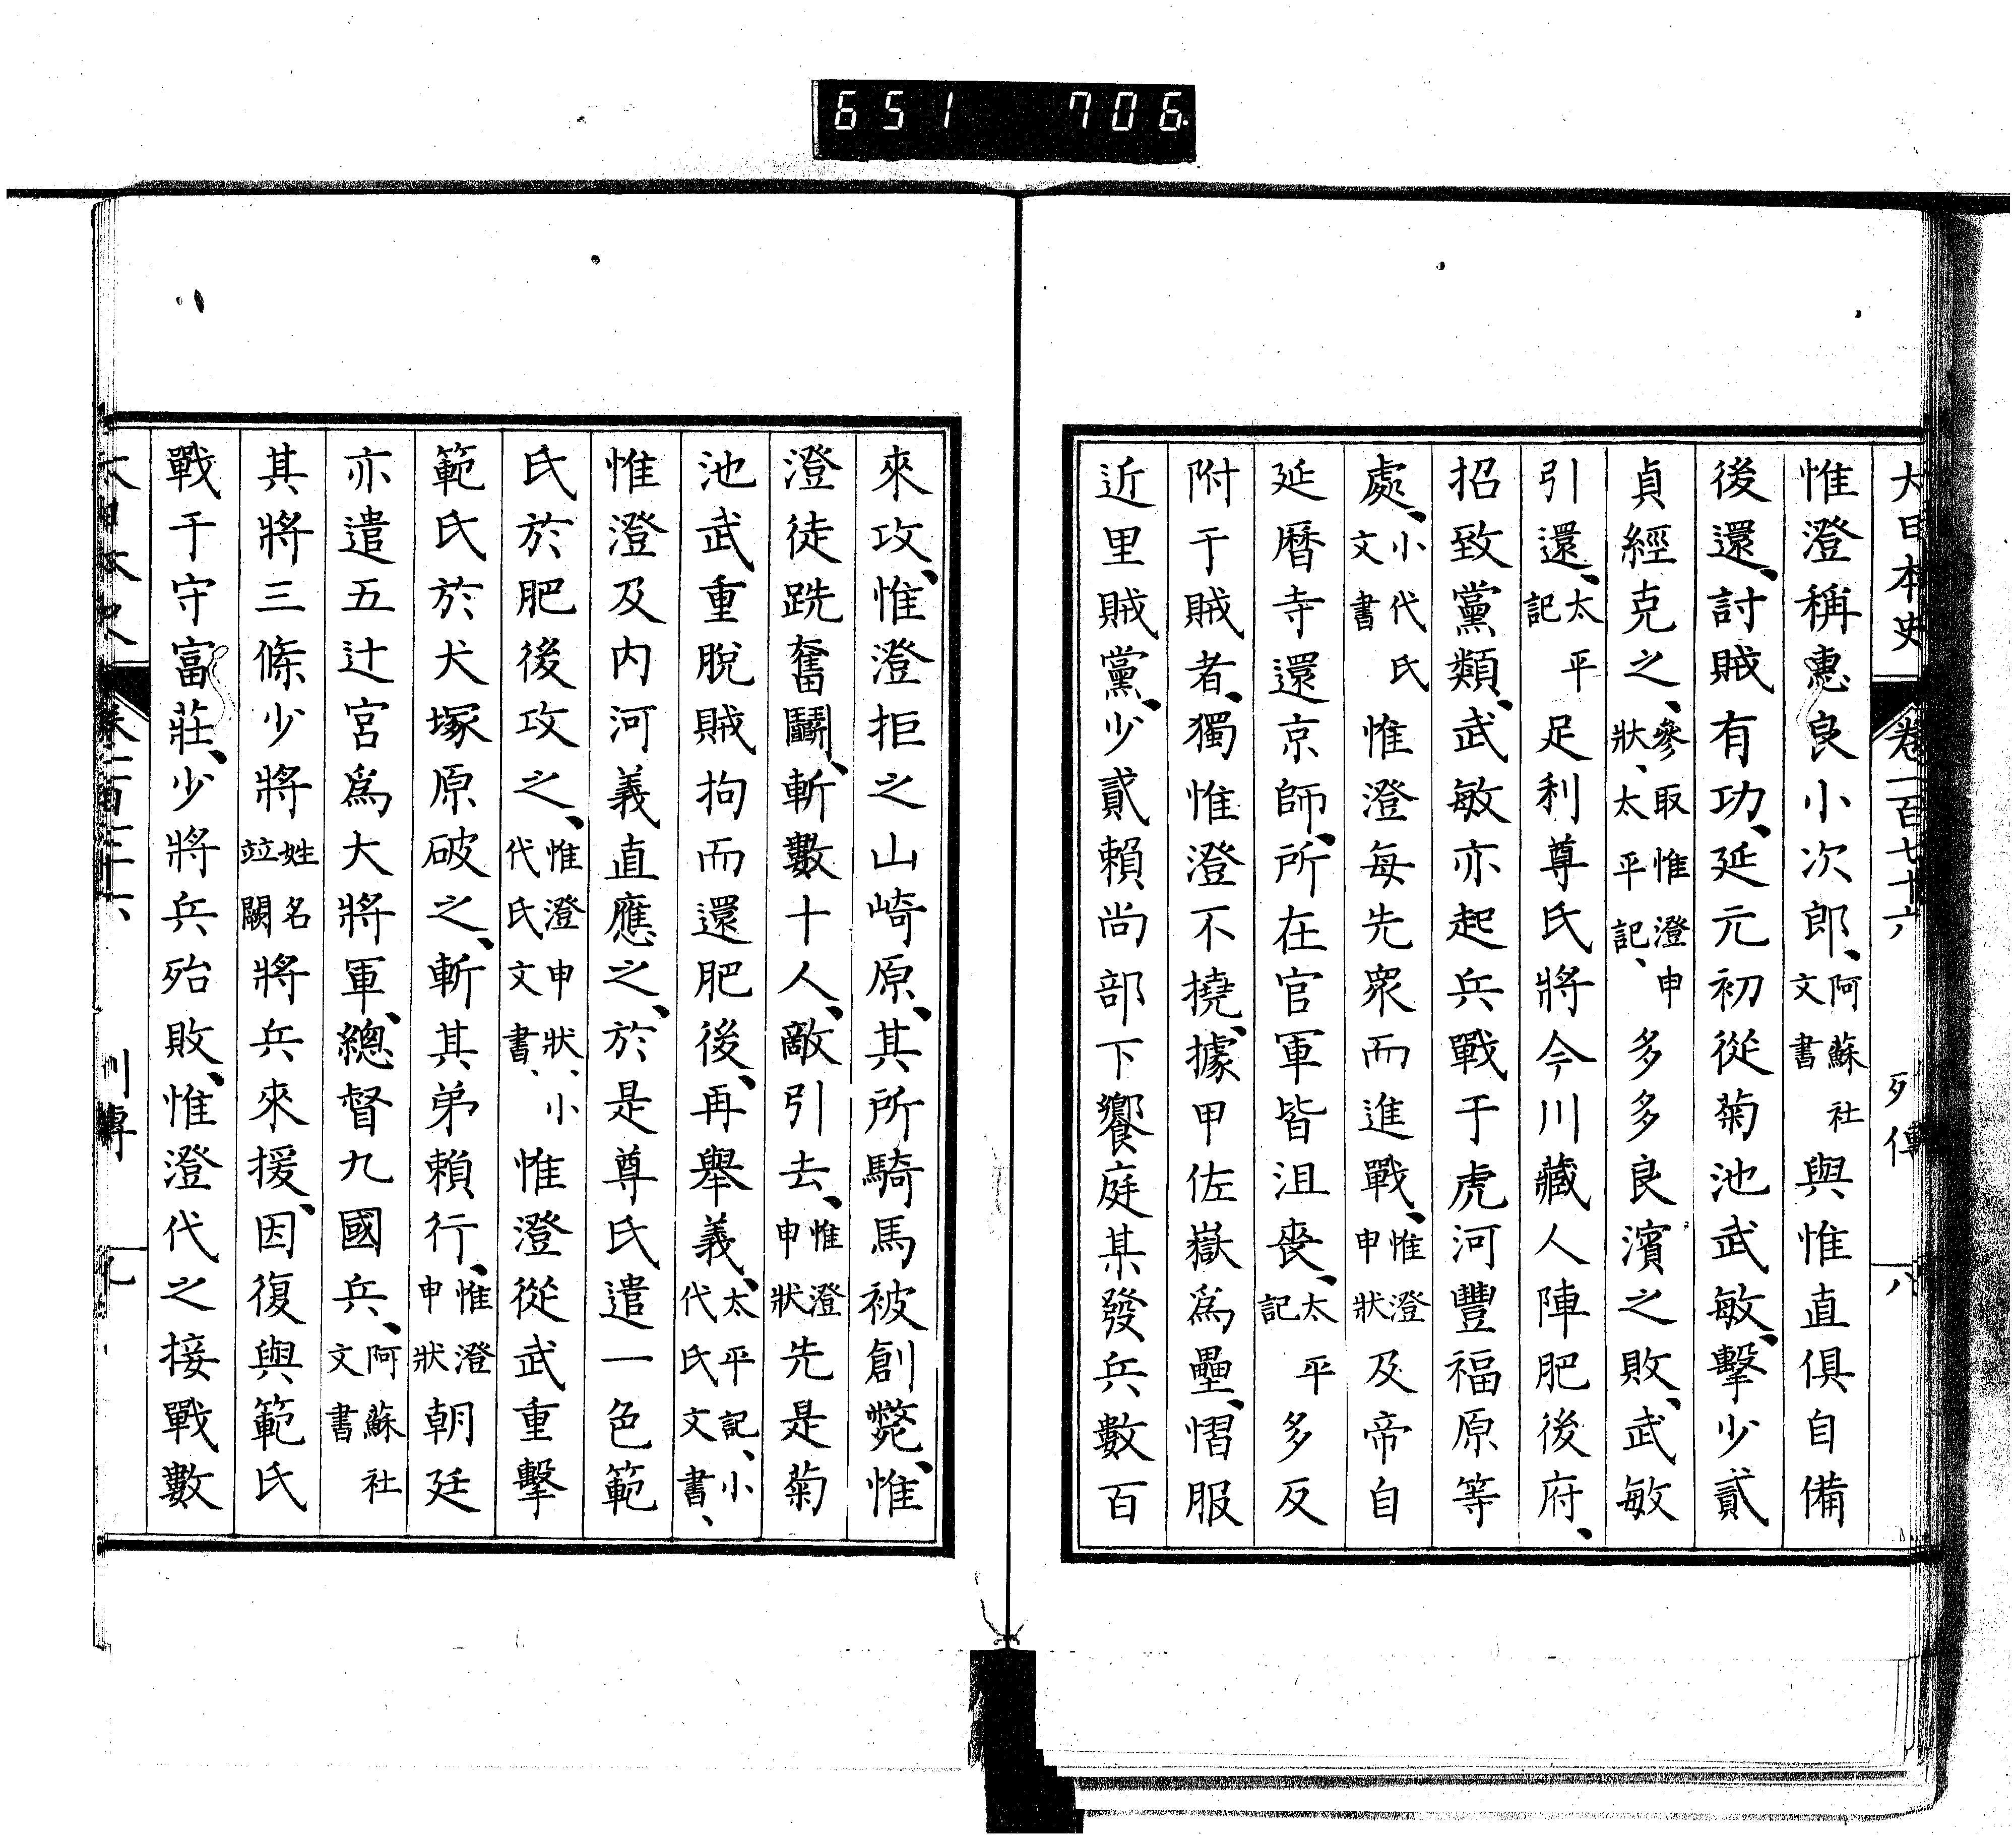 651 706
大日本史 卷一百七十六 列傳 八
惟澄稱惠良小次郎、阿蘇社文書與惟直俱自備
後還、討賊有功、延元初從菊池武敏、擊少貳
貞經克之、參取惟澄申狀、太平記、多多良濱之敗、武敏
引還、太平記足利尊氏將今川藏人陣肥後府、
招致黨類、武敏亦起兵戰于虎河豐福原等
處、小代氏文書惟澄每先衆而進戰、惟澄申狀及帝自
延曆寺還京師、所在官軍皆沮喪、太平記多反
附于賊者、獨惟澄不撓、據甲佐嶽爲壘、慴服
近里賊黨、少貳賴尚部下饗庭某發兵數百
來攻、惟澄拒之山崎原、其所騎馬被創斃、惟
澄徒跣奮鬭、斬數十人、敵引去、惟澄申狀先是菊
池武重脫賊拘而還肥後、再舉義、太平記、小代氏文書、
惟澄及內河義直應之、於是尊氏遣一色範
氏於肥後攻之、惟澄申狀、小代氏文書、惟澄從武重擊
範氏於犬塚原破之、斬其弟賴行、惟澄申狀朝廷
亦遣五辻宮爲大將軍、總督九國兵、阿蘇社文書
其將三條少將姓名竝闕名將兵來援、因復與範氏
戰于守富莊、少將兵殆敗、惟澄代之接戰數